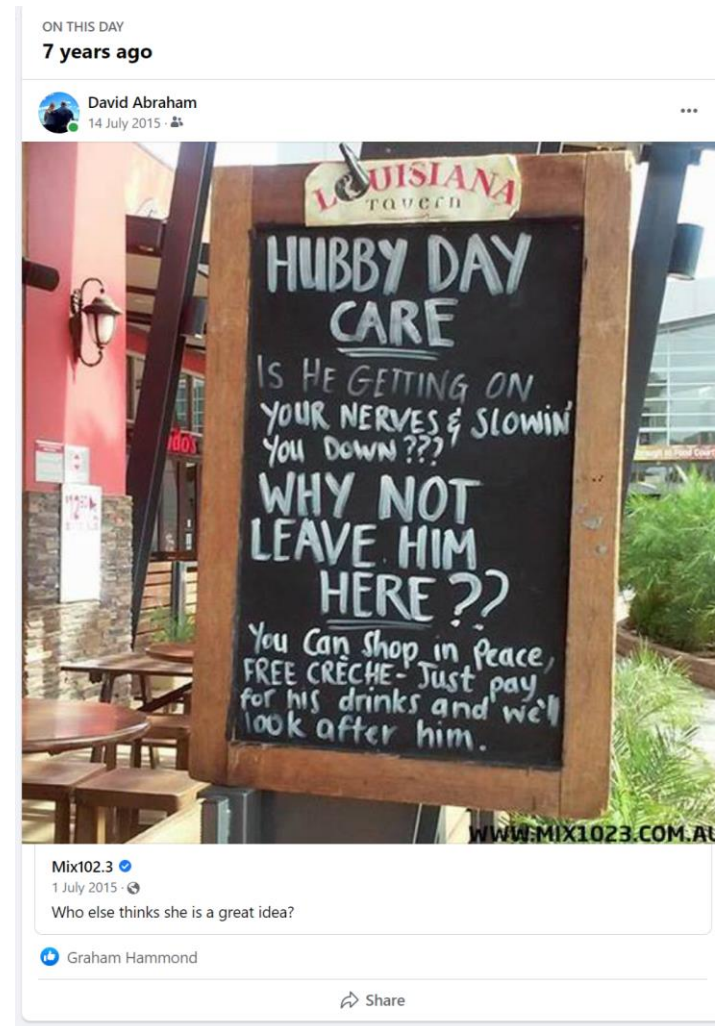 ON THIS DAY
7 years ago
David Abraham
14 July 2015
LOUISIANA
Tavern
HUBBY DAY
CARE
IS HE GETTING ON
YOUR NERVES & SLOWIN'
YOU DOWN???
WHY NOT
LEAVE HIM
HERE??
You Can Shop in Peace,
FREE CRÈCHE - Just pay
for his drinks and we'll
look after him.
WWW.MIX1023.COM.AU
Mix102.3
1 July 2015
Who else thinks she is a great idea?
Graham Hammond
Share